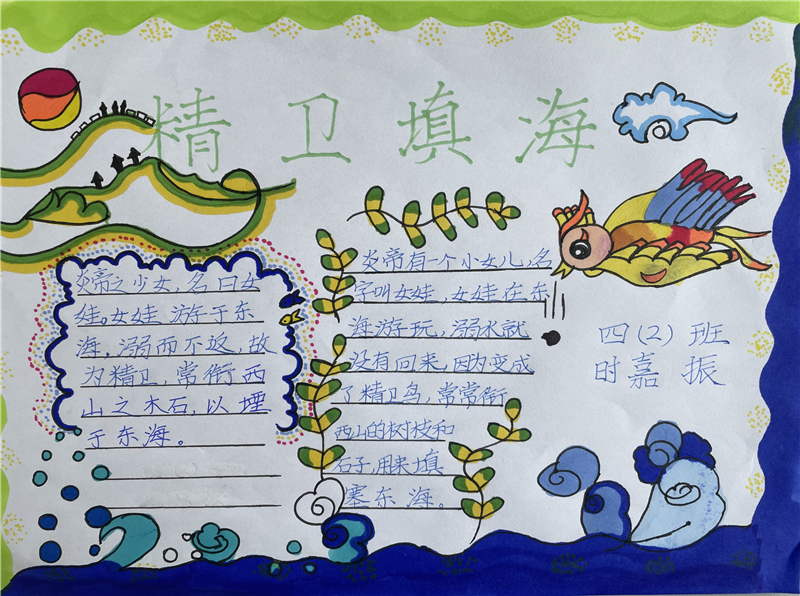 精卫填海
炎帝之少女,名曰女
娃。女娃游于东
海,溺而不返,故
为精卫,常衔西
山之木石,以堙
于东海。
炎帝有一个小女儿,名
字叫女娃,女娃在东
海游玩,溺水就
没有回来,因为变成
了精卫鸟,常常衔
西山的树枝和
石子,用来填
塞东海。
四(2)班
时嘉振